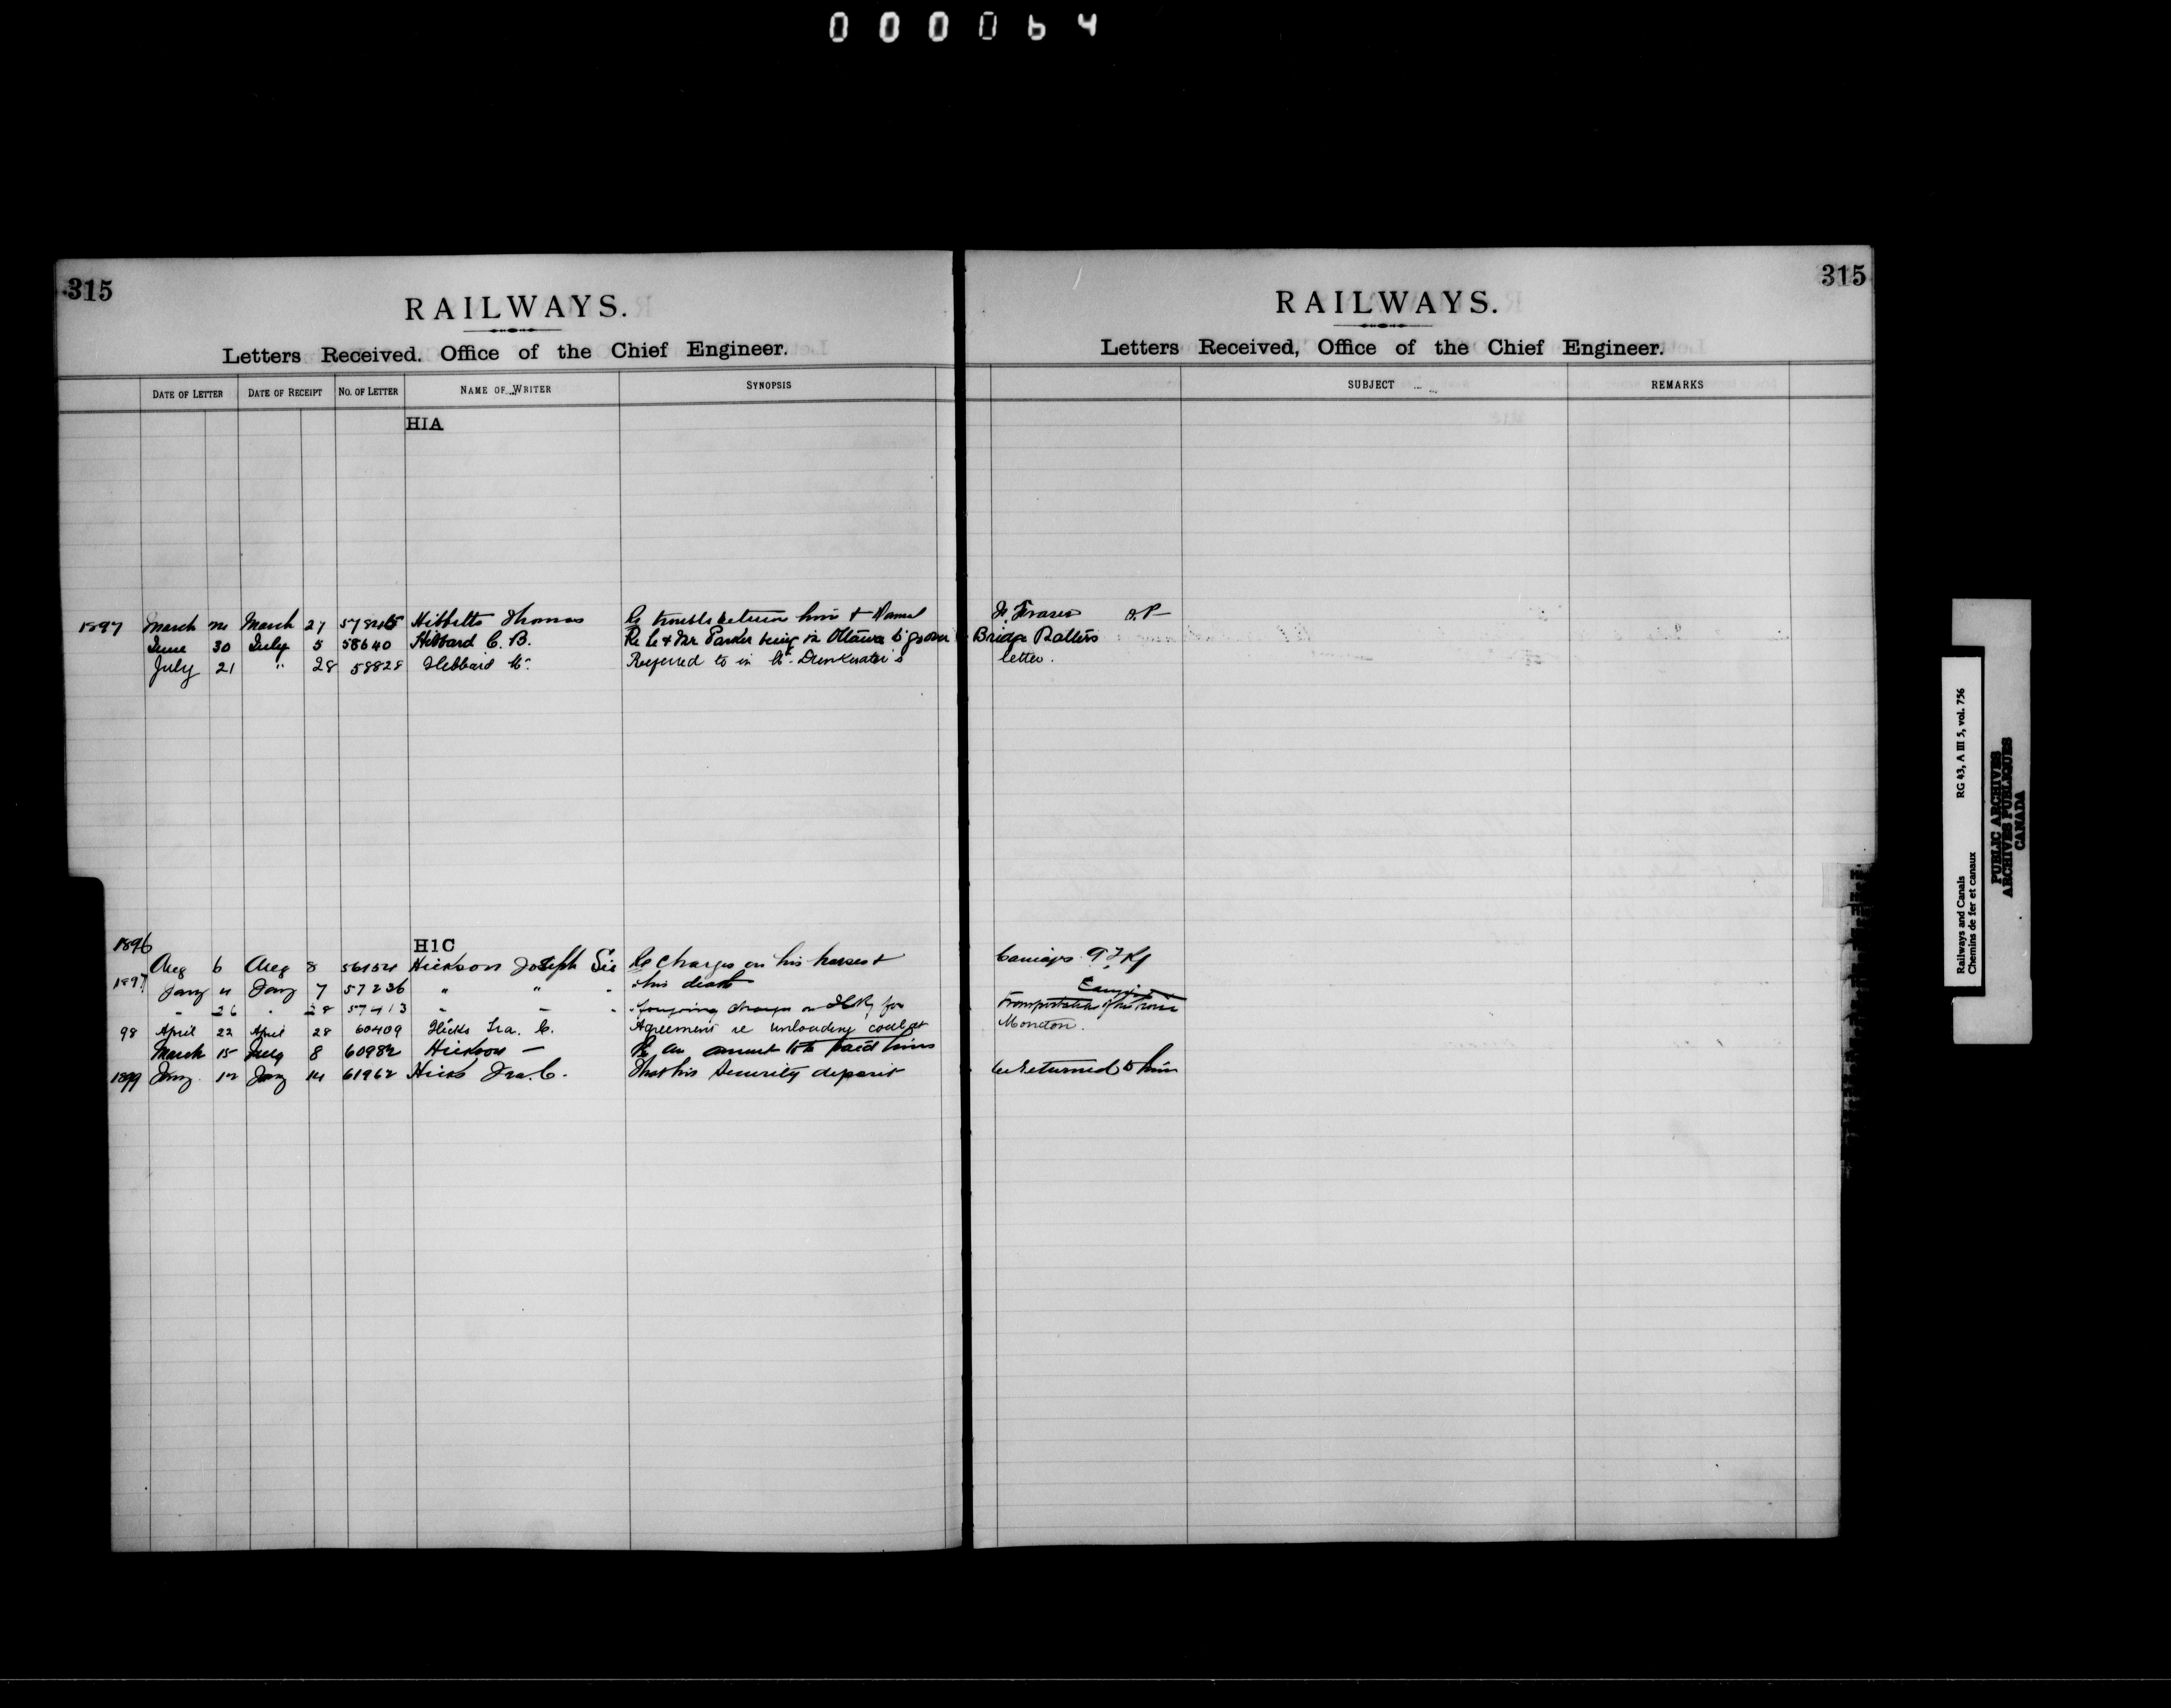 000064
315
RAILWAYS.
Letters Received. Office of the Chief Engineer.
DATE OF LETTER DATE OF RECEIPT NO. OF LETTER NAME OF WRITER SYNOPSIS
HIA
1897 March March 27 Hibbetts Thomas Re trouble between him + Daniel
June 30 July 5 58640 Hibbard C. B. Re he & Mr Parker being in Ottawa to go over
July 21 " 28 58828 Hebbard Referred to in
1896
HIC
Aug 6 Aug 8 56154 Hickson Joseph Sir Re charges on his horses +
1897 Jany 4 Jany 7 57236 " " " his death
" 26 " 28 57413 " " " charges on ICRy for
98 April 22 April 28 60409 Hicks Ira. C. Agreement re unloading coal at
March 15 July 8 60982 Hickson — Re an amount to be paid him
1899 Jany. 12 Jany 14 61962 Hicks Ira. C. That his Security deposit
315
RAILWAYS.
Letters Received, Office of the Chief Engineer.
SUBJECT REMARKS
Fraser
Bridge Rollers
letter.
Carriages
Transportation of his horse
Moncton.
be returned to him
Railways and Canals RG 43, A III 5, vol. 756
Chemins de fer et canaux
PUBLIC ARCHIVES
ARCHIVES PUBLIQUES
CANADA